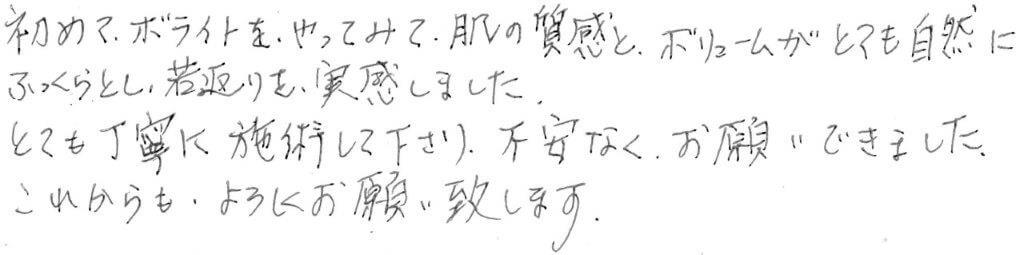 初めて、ボライトを、やってみて、肌の質感と、ボリュームがとても自然に
ふっくらとし、若返りを、実感しました。
とても丁寧に施術して下さり、不安なく、お願いできました。
これからも、よろしくお願い致します。